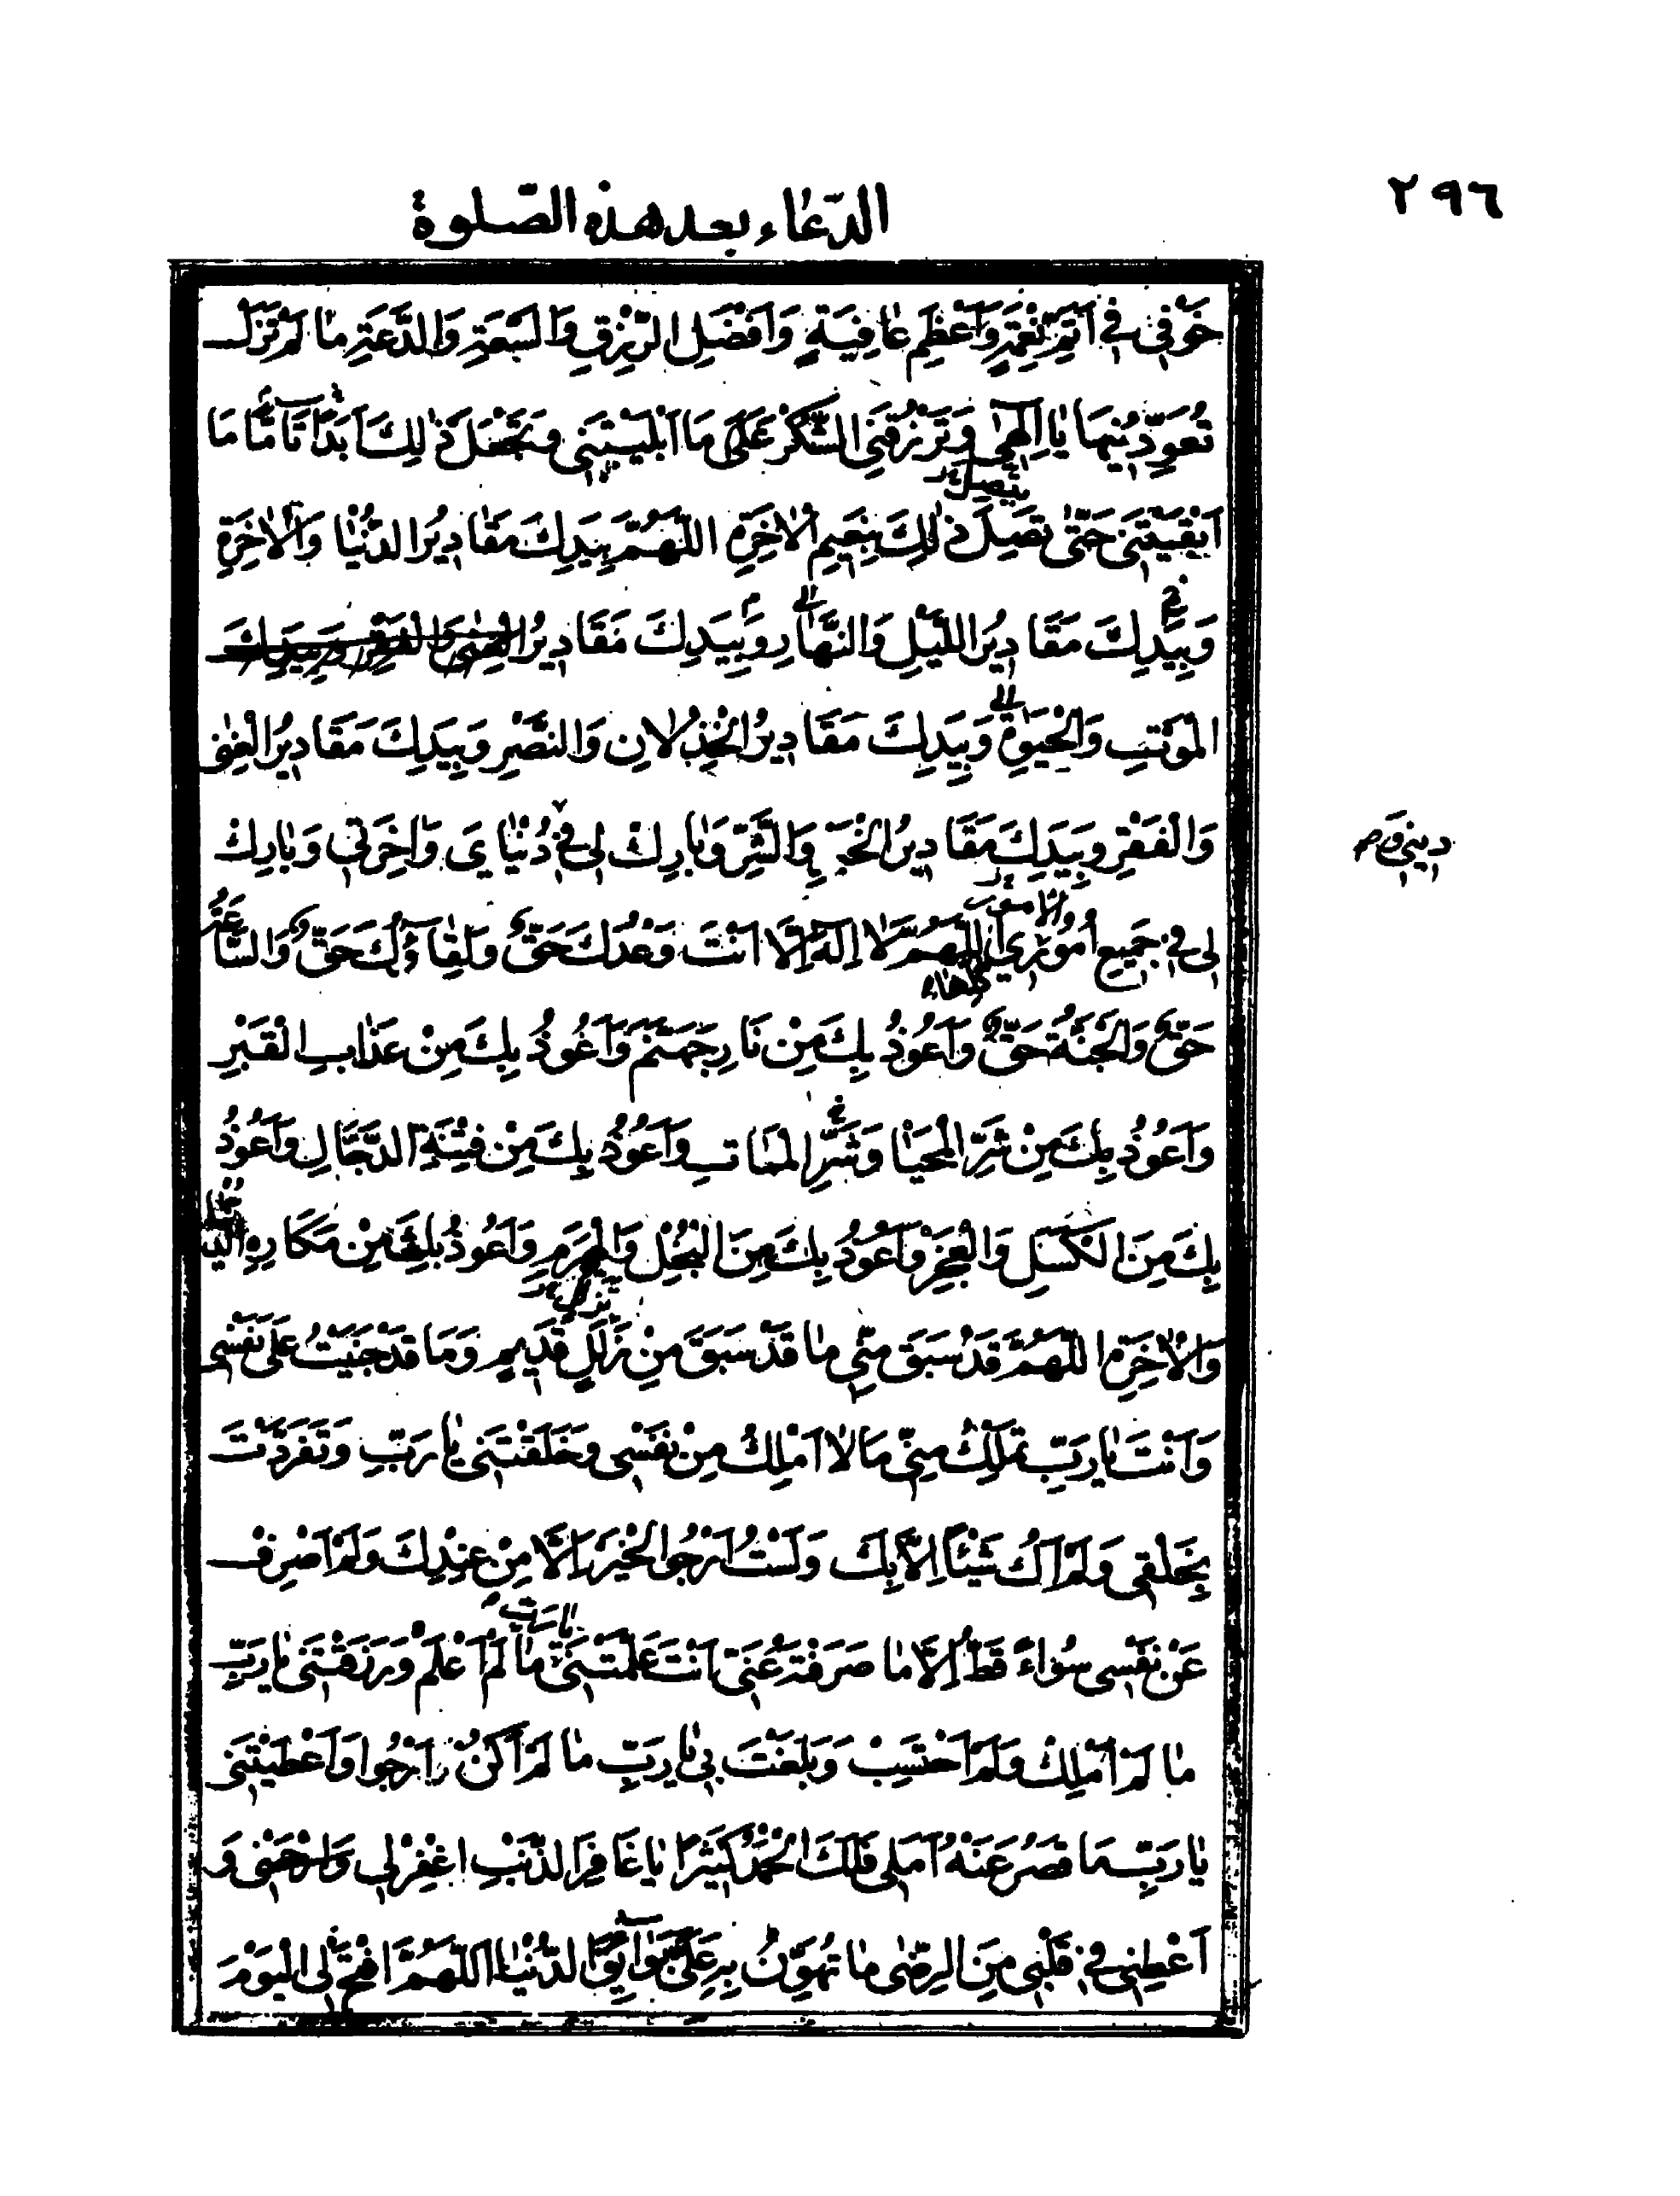 ٢٩٦
الدّعاء بعد هذه الصّلوة
خَوْفي في اَتَمِّ نِعْمَةٍ وَاَعْظَمِ عافِيَةٍ وَاَفْضَلِ الرِّزْقِ وَالسَّعَةِ وَالدَّعَةِ ما لَمْ تَزَلْ
تُعَوِّدُنيها يا اِلهي وَتَرْزُقَنِي الشُّكْرَ عَلى ما اَبْلَيْتَني وَتَجْعَلَ ذلِكَ اَبَداً تامّاً ما
اَبْقَيْتَني حَتّى تَصِلَ ذلِكَ بِنَعيمِ الاخِرَةِ اللّهُمَّ بِيَدِكَ مَقاديرُ الدُّنْيا وَالاخِرَةِ
وَبِيَدِكَ مَقاديرُ اللَّيْلِ وَالنَّهارِ وَبِيَدِكَ مَقاديرُ
الْمَوْتِ وَالْحَيوةِ وَبِيَدِكَ مَقاديرُ الْخِذْلانِ وَالنَّصْرِ وَبِيَدِكَ مَقاديرُ الْغِنى
وَالْفَقْرِ وَبِيَدِكَ مَقاديرُ الْخَيْرِ وَالشَّرِّ وَبارِكْ لي في دُنْيايَ وَاخِرَتي وَبارِكْ
ديني وَ ص
لي في جَميعِ اُمُوري اَللّهُمَّ لا اِلهَ اِلّا اَنْتَ وَعْدُكَ حَقٌّ وَلِقاؤُكَ حَقٌّ وَالسّاعَةُ
حَقٌّ وَالْجَنَّةُ حَقٌّ وَاَعُوذُ بِكَ مِنْ نارِ جَهَنَّمَ وَاَعُوذُ بِكَ مِنْ عَذابِ الْقَبْرِ
وَاَعُوذُ بِكَ مِنْ شَرِّ الْمَحْيا وَشَرِّ الْمَماتِ وَاَعُوذُ بِكَ مِنْ فِتْنَةِ الدَّجّالِ وَاَعُوذُ
بِكَ مِنَ الْكَسَلِ وَالْعَجْزِ وَاَعُوذُ بِكَ مِنَ الْبُخْلِ وَالْهَرَمِ وَاَعُوذُ بِكَ مِنْ مَكارِهِ الدُّنْيا
وَالاخِرَةِ اللّهُمَّ قَدْ سَبَقَ مِنّي ما قَدْ سَبَقَ مِنْ زَلَلٍ قَديمٍ وَما قَدْ جَنَيْتُ عَلى نَفْسي
وَاَنْتَ يا رَبِّ تَمْلِكُ مِنّي ما لا اَمْلِكُ مِنْ نَفْسي وَخَلَقْتَني يا رَبِّ وَتَفَرَّدْتَ
بِخَلْقي وَلَمْ اَكُ شَيْئاً اِلّا بِكَ وَلَسْتُ اَرْجُوا الْخَيْرَ اِلّا مِنْ عِنْدِكَ وَلَمْ اَصْرِفْ
عَنْ نَفْسي سُوءاً قَطُّ اِلّا ما صَرَفْتَهُ عَنّي اَنْتَ عَلَّمْتَني ما لَمْ اَعْلَمْ وَرَزَقْتَني يا رَبِّ
ما لَمْ اَمْلِكْ وَلَمْ اَحْتَسِبْ وَبَلَغْتَ بي يا رَبِّ ما لَمْ اَكُنْ اَرْجُوا وَاَعْطَيْتَني
يا رَبِّ ما قَصُرَ عَنْهُ اَمَلي فَلَكَ الْحَمْدُ كَثيراً يا غافِرَ الذَّنْبِ اغْفِرْ لي وَارْحَمْني وَ
اَعْطِني في قَلْبي مِنَ الرِّضى ما تُهَوِّنُ بِهِ عَلَيَّ بَوائِقَ الدُّنْيا اَللّهُمَّ افْتَحْ لِي الْيَوْمَ